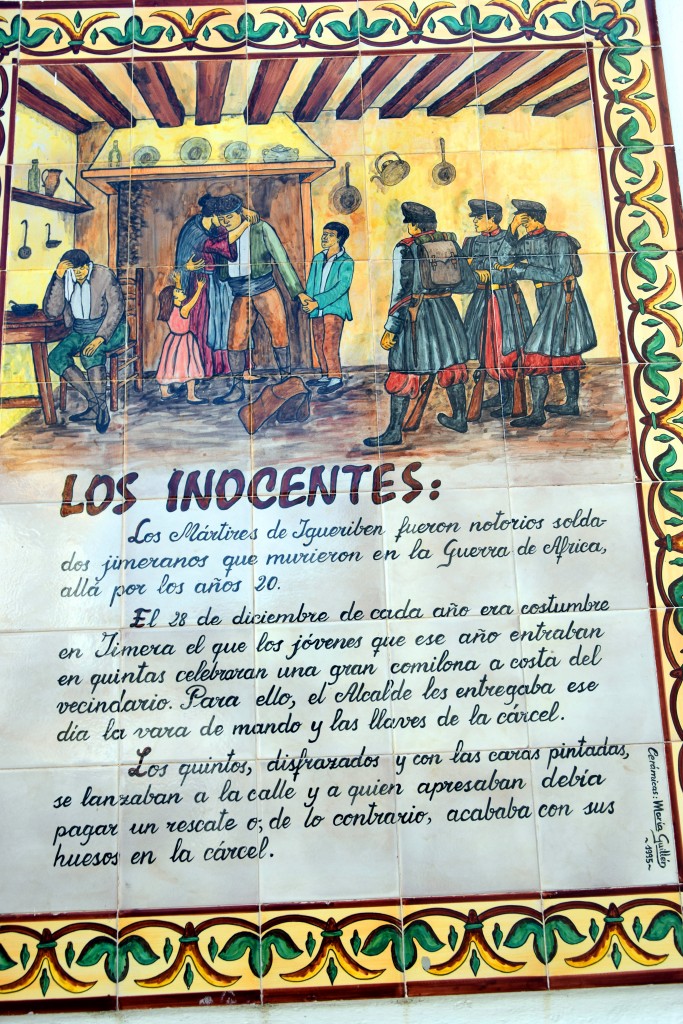 LOS INOCENTES:
Los Mártires de Igueriben fueron notorios solda-
dos jimeranos que murieron en la Guerra de Africa,
allá por los años 20.
El 28 de diciembre de cada año era costumbre
en Jimera el que los jóvenes que ese año entraban
en quintas celebraran una gran comilona a costa del
vecindario. Para ello, el Alcalde les entregaba ese
día la vara de mando y las llaves de la cárcel.
Los quintos, disfrazados y con las caras pintadas,
se lanzaban a la calle y a quien apresaban debía
pagar un rescate o, de lo contrario, acababa con sus
huesos en la cárcel.
Cerámicas: María Guillén
~1995~